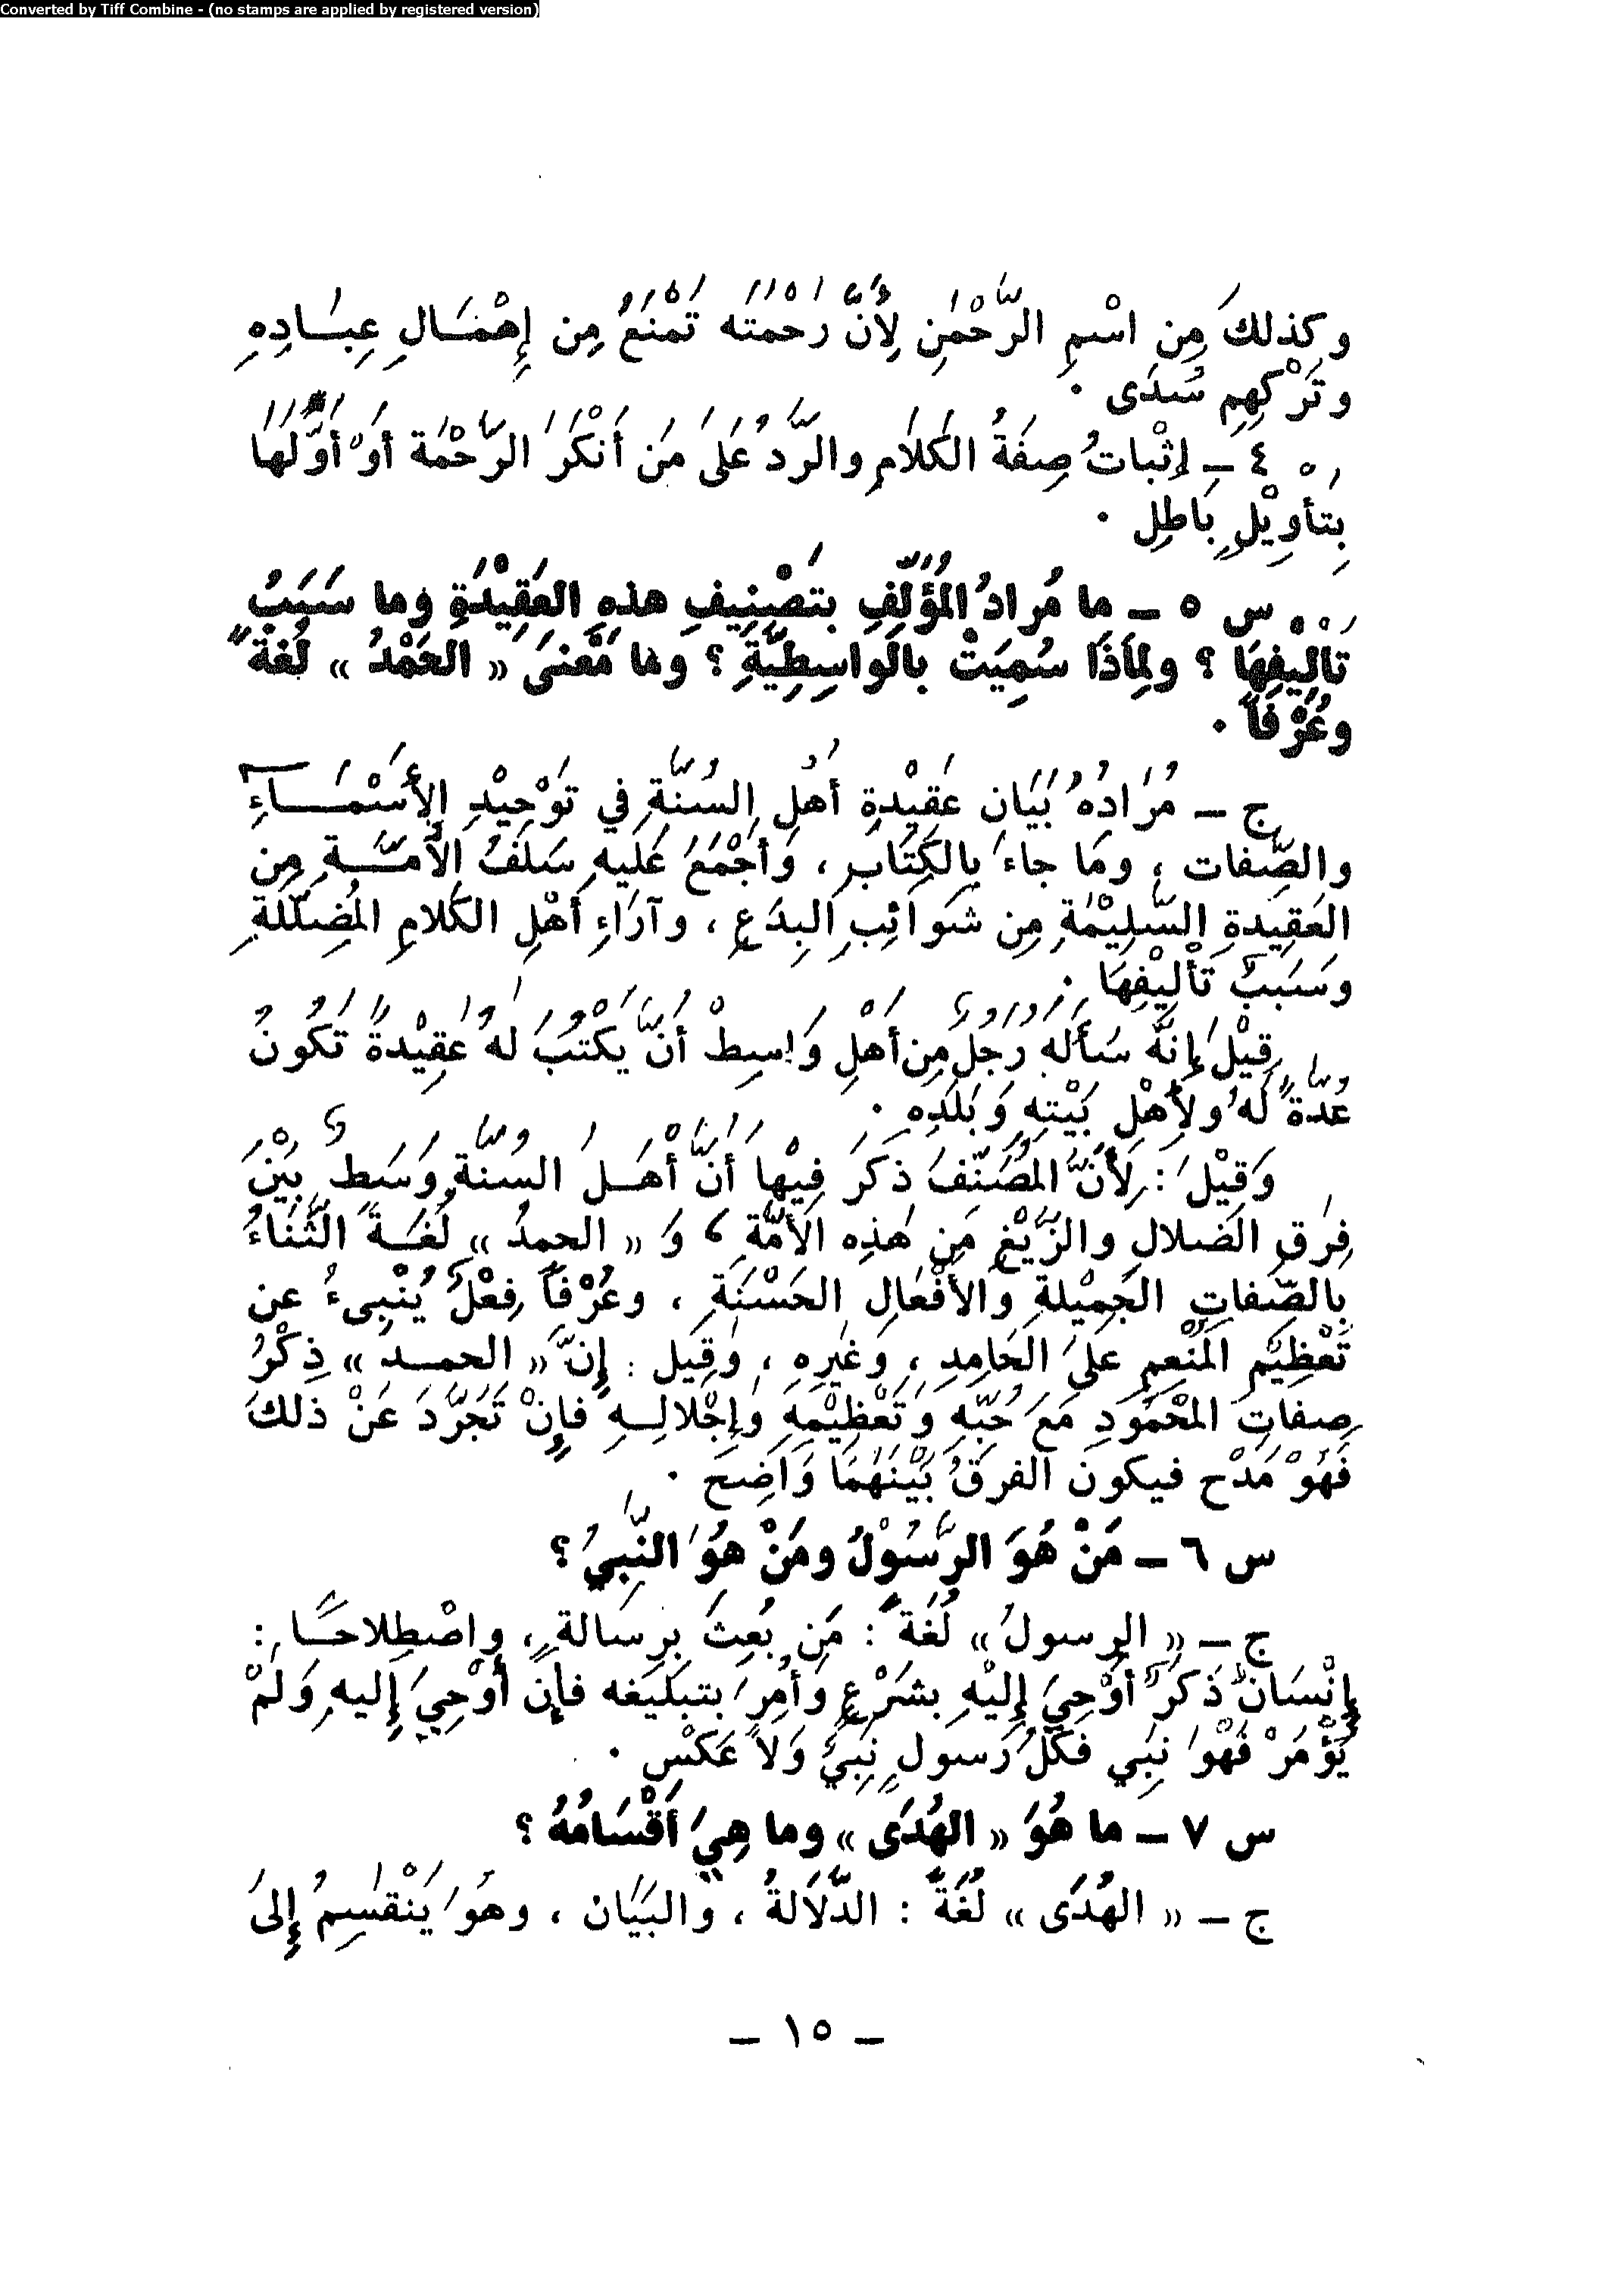 Converted by Tiff Combine - (no stamps are applied by registered version)
وكذلكَ مِن اسْمِ الرَّحْمٰنِ لِأَنَّ رَحْمَتَهُ تَمْنَعُ مِن إِهْمَالِ عِبَادِهِ
وتَرْكِهِم سُدَى .
٤ – إِثْباتُ صِفَةُ الكَلَامِ والرَّدُ عَلَى مَن أَنْكَرَ الرَّحْمَة أَوْ أَوَّلَهَا
بِتأوِيْلٍ بَاطِلٍ .
س ٥ – ما مُرادُ المُؤَلِّفِ بتَصْنِيفِ هذهِ العَقِيْدَةِ وما سَبَبُ
تَأْلِيْفِهَا ؟ ولِمَاذَا سُمِيَتْ بالوَاسِطِيَّةِ ؟ وما مَعْنَى « الحَمْدُ » لُغةً
وعُرْفاً .
ج – مُرَادُهُ بَيَانِ عَقِيْدِةِ أَهْلِ السُنَّةِ في تَوْحِيْدِ الأَسْمَاءِ
والصِّفات ، ومَا جاءَ بالكِتَابِ ، وَأَجْمَعَ عَلَيهِ سَلَفُ الأُمَّةِ مِن
العَقِيدةِ السَّلِيْمَةِ مِن شَوائِبِ البِدَعِ ، وآرَاءِ أَهْلِ الكَلامِ المُضَلِّلَةِ
وسَبَبُ تَأْلِيْفِهَا .
قِيْلَ إِنَّهُ سَأَلَهُ رَجُلٌ مِن أَهْلِ وَاسِطْ أَنَّ يَكْتُبَ لهُ عَقِيْدةً تَكُونُ
عُدَّةً لَهُ ولأَهْلِ بَيْتِهِ وَبَلَدِهِ .
وَقِيْلَ : لأَنَّ المُصَنِّفَ ذَكَرَ فِيْها أَنَّ أَهَلَ السُنَّةِ وَسَطٌ بَيْنَ
فِرَقِ الضَلالِ والزَّيْغِ مَن هٰذِه الأُمَّةِ ، وَ « الحمدُ » لُغَةً الثَّنَاءُ
بالصِّفاتِ الجَمِيْلةِ وَالأَفْعَالِ الحَسْنَةِ ، وعُرْفاً فِعْلٌ يُنْبِىءُ عن
تَعْظِيْمِ المُنْعِمِ عَلَى الحَامِدِ ، وَغَيْرِهِ ، وَقِيَل : إِنَّ « الحمد » ذِكْرُ
صِفاتِ المَحْمُودِ مَعَ حُبِّهِ وَتَعْظِيْمِهِ وَإِجْلالِهِ فإِنْ تَجَرَّدَ عَنْ ذلكَ
فَهْوَ مَدْح فيكون الفرقُ بَيْنَهُمَا وَاضِحَ .
س ٦ – مَنْ هُوَ الرَّسُوْلُ ومَنْ هُوَ النَّبِيُ ؟
ج – « الرسولُ » لُغَةً : مَن بُعِثَ بِرِسَالةٍ ، واصْطِلاحَا :
إِنْسَانٌ ذَكَرٌ أُوْحِيَ إِلَيْهِ بشَرْعٍ وَأُمِرَ بتبليَغه فإن أُوْحِيَ إِليهِ وَلَمْ
يُؤْمَرْ فَهْوَ نِبَي فَكُلُّ رَسولٍ نَبِيٌّ وَلَا عَكْسِ .
س ٧ – ما هُوَ « الهُدَى » وما هِيَ أَقْسَامُهُ ؟
ج – « الهُدَى » لُغَةً : الدَّلَالةُ ، والبَيَان ، وهُوَ يَنْقَسِمُ إِلى
– ١٥ –